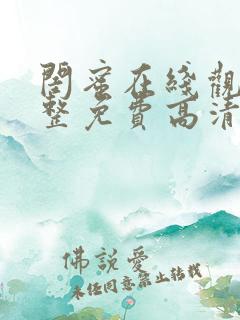 閨蜜在綫觀
整免費高清
佛説愛
未经同意禁止转载